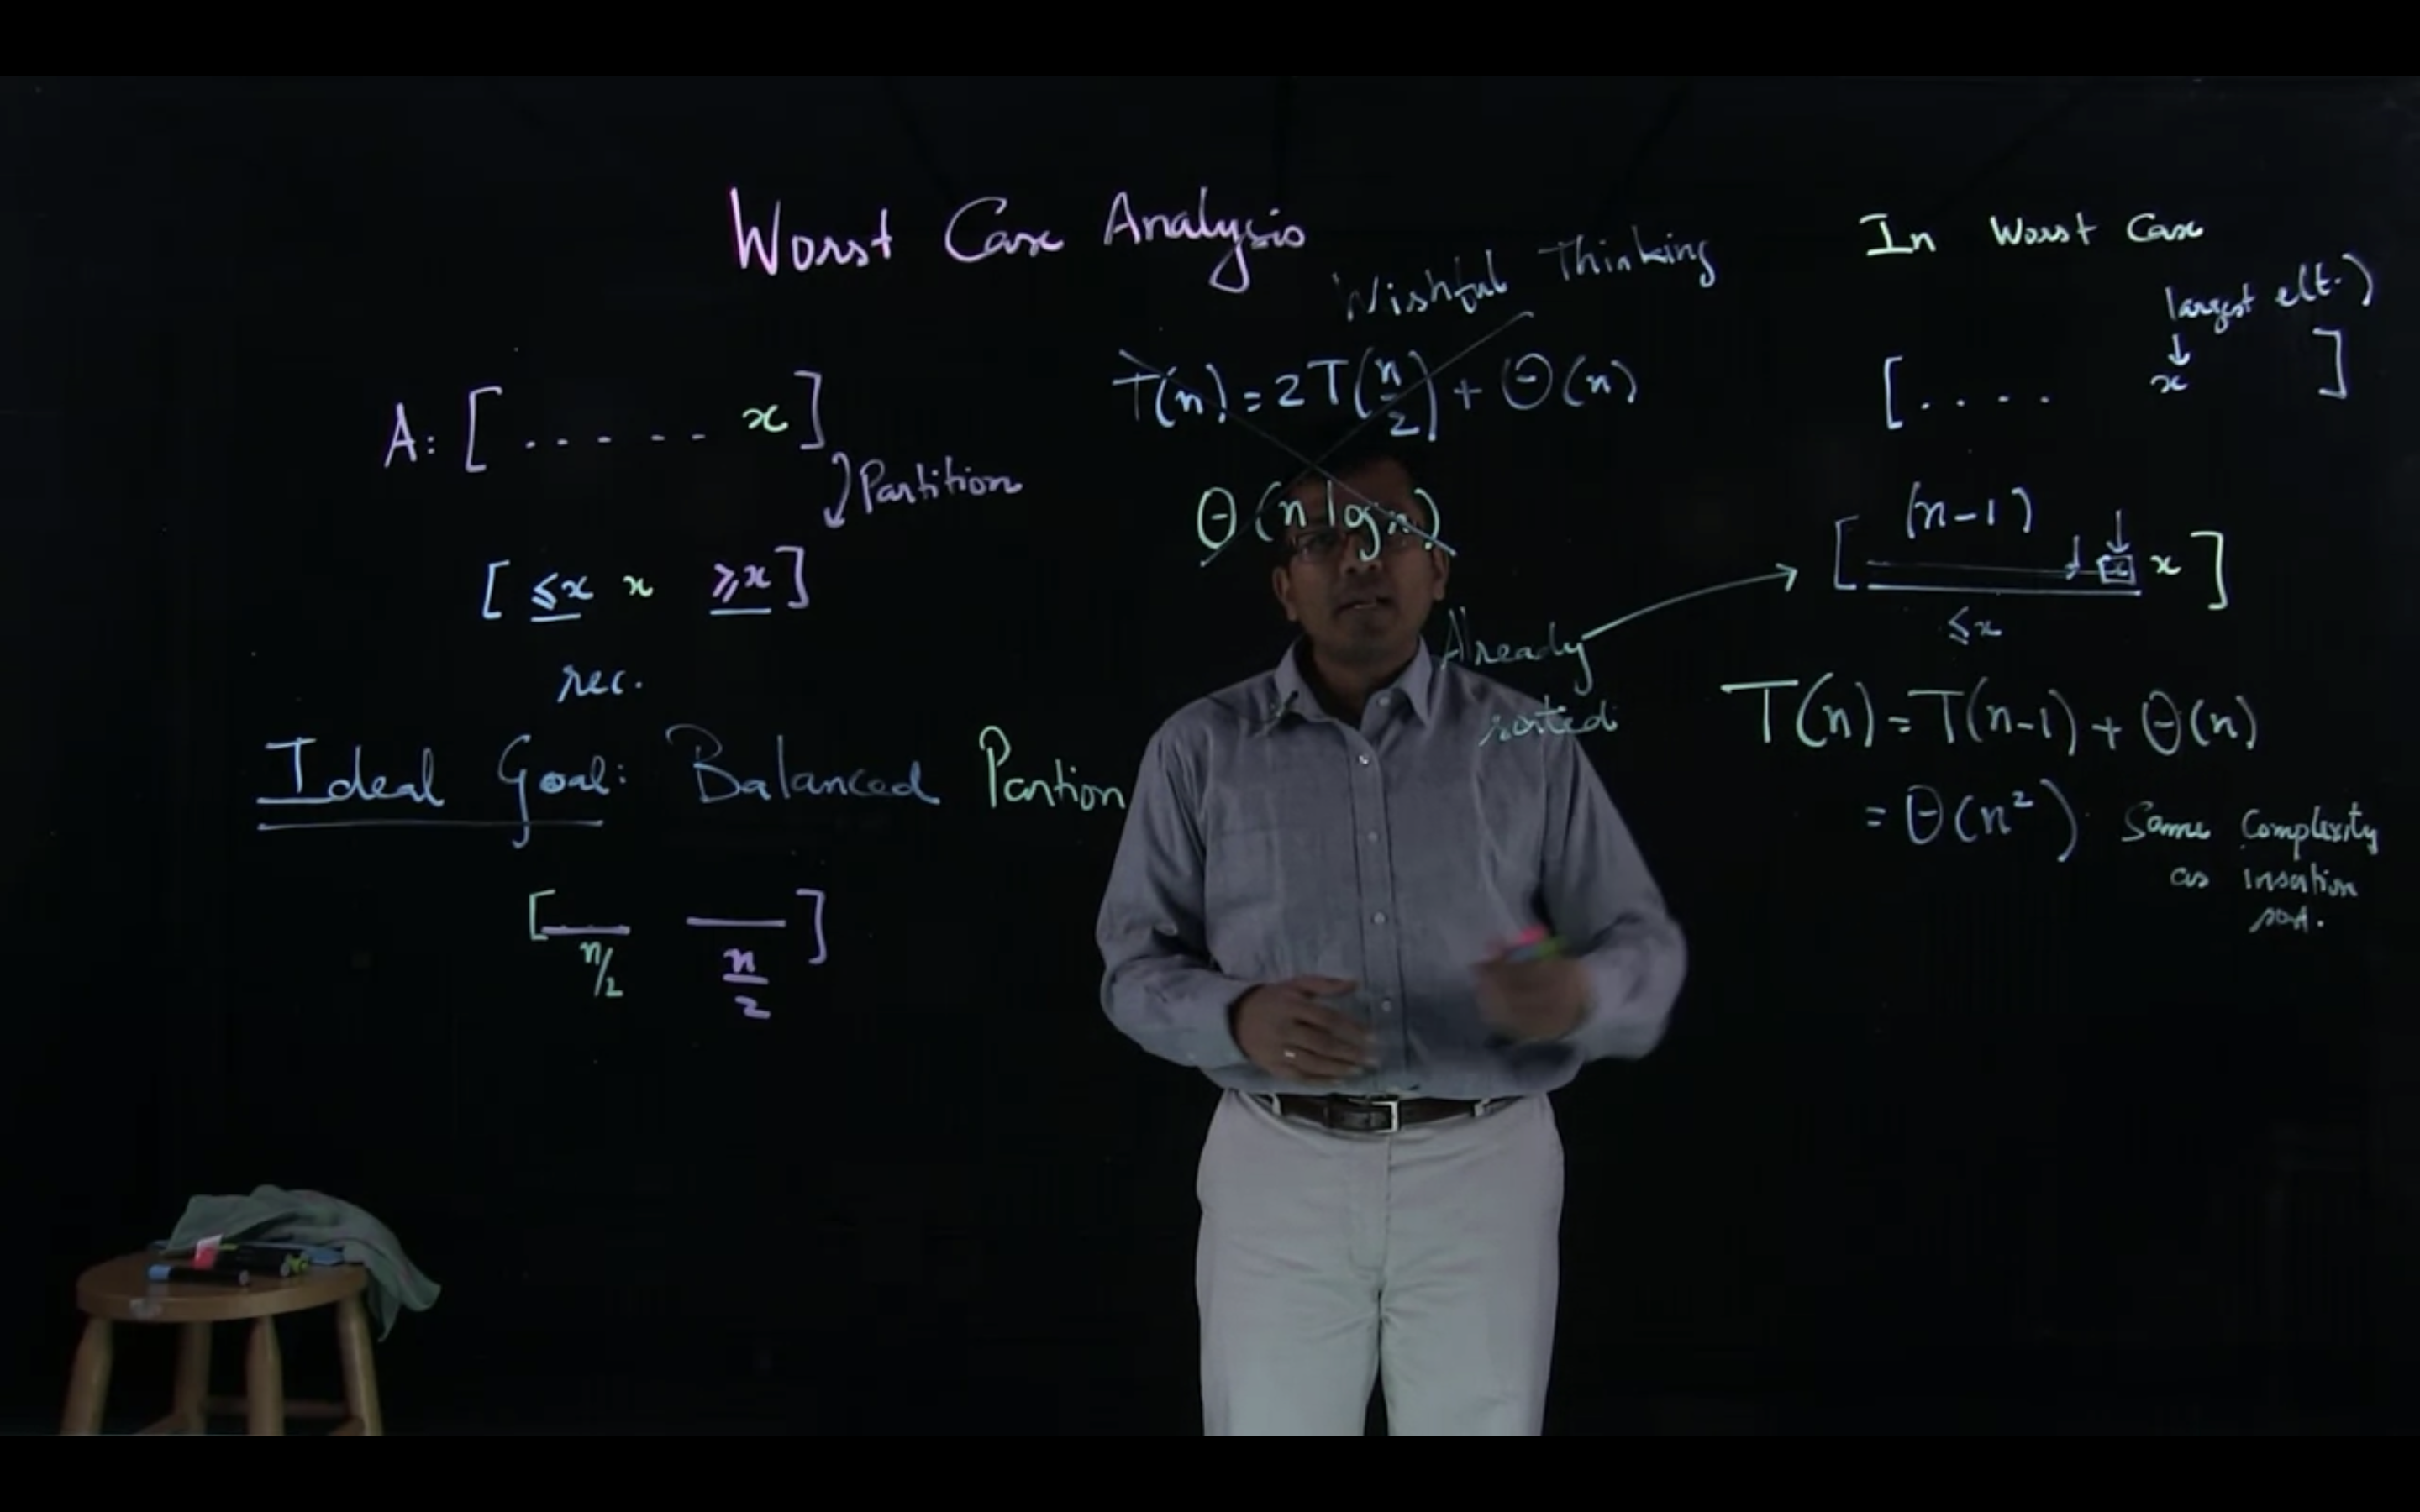 Worst Case Analysis
A: [ . . . - - - x ]
Partition
[ ≤x x ≥x ]
rec.
Ideal Goal: Balanced Partion
[ ]
n/2 n/2
Wishful Thinking
T(n) = 2T(n/2) + Θ(n)
Θ(n log n)
Already
sorted
In Worst Case
largest elt.)
↓
[ . . . . x ]
(n-1)
[ x x ]
≤x
T(n) = T(n-1) + Θ(n)
= Θ(n²) Same Complexity
as insertion
sort.